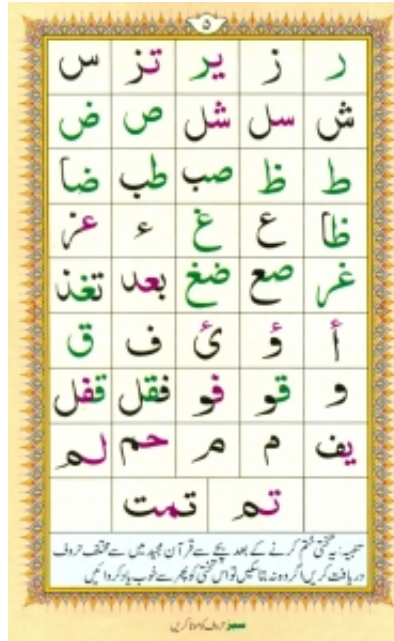 ۵
ر ز یر تز س
ش سل شل ص ض
ط ظ صب طب ضا
ظا ع غ ء عز
غر صع ضغ بعد تغذ
أ ؤ ئ ف ق
و قو فو فقل قفل
یف م م حم لم
تم تمت
تنبیہ: یہ تختی ختم کرنے کے بعد بچے سے قرآن مجید میں سے مختلف حروف
دریافت کریں اگر وہ نہ بتا سکیں تو اس تختی کو پھر سے خوب یاد کروائیں
سبز حروف کو موٹا کریں